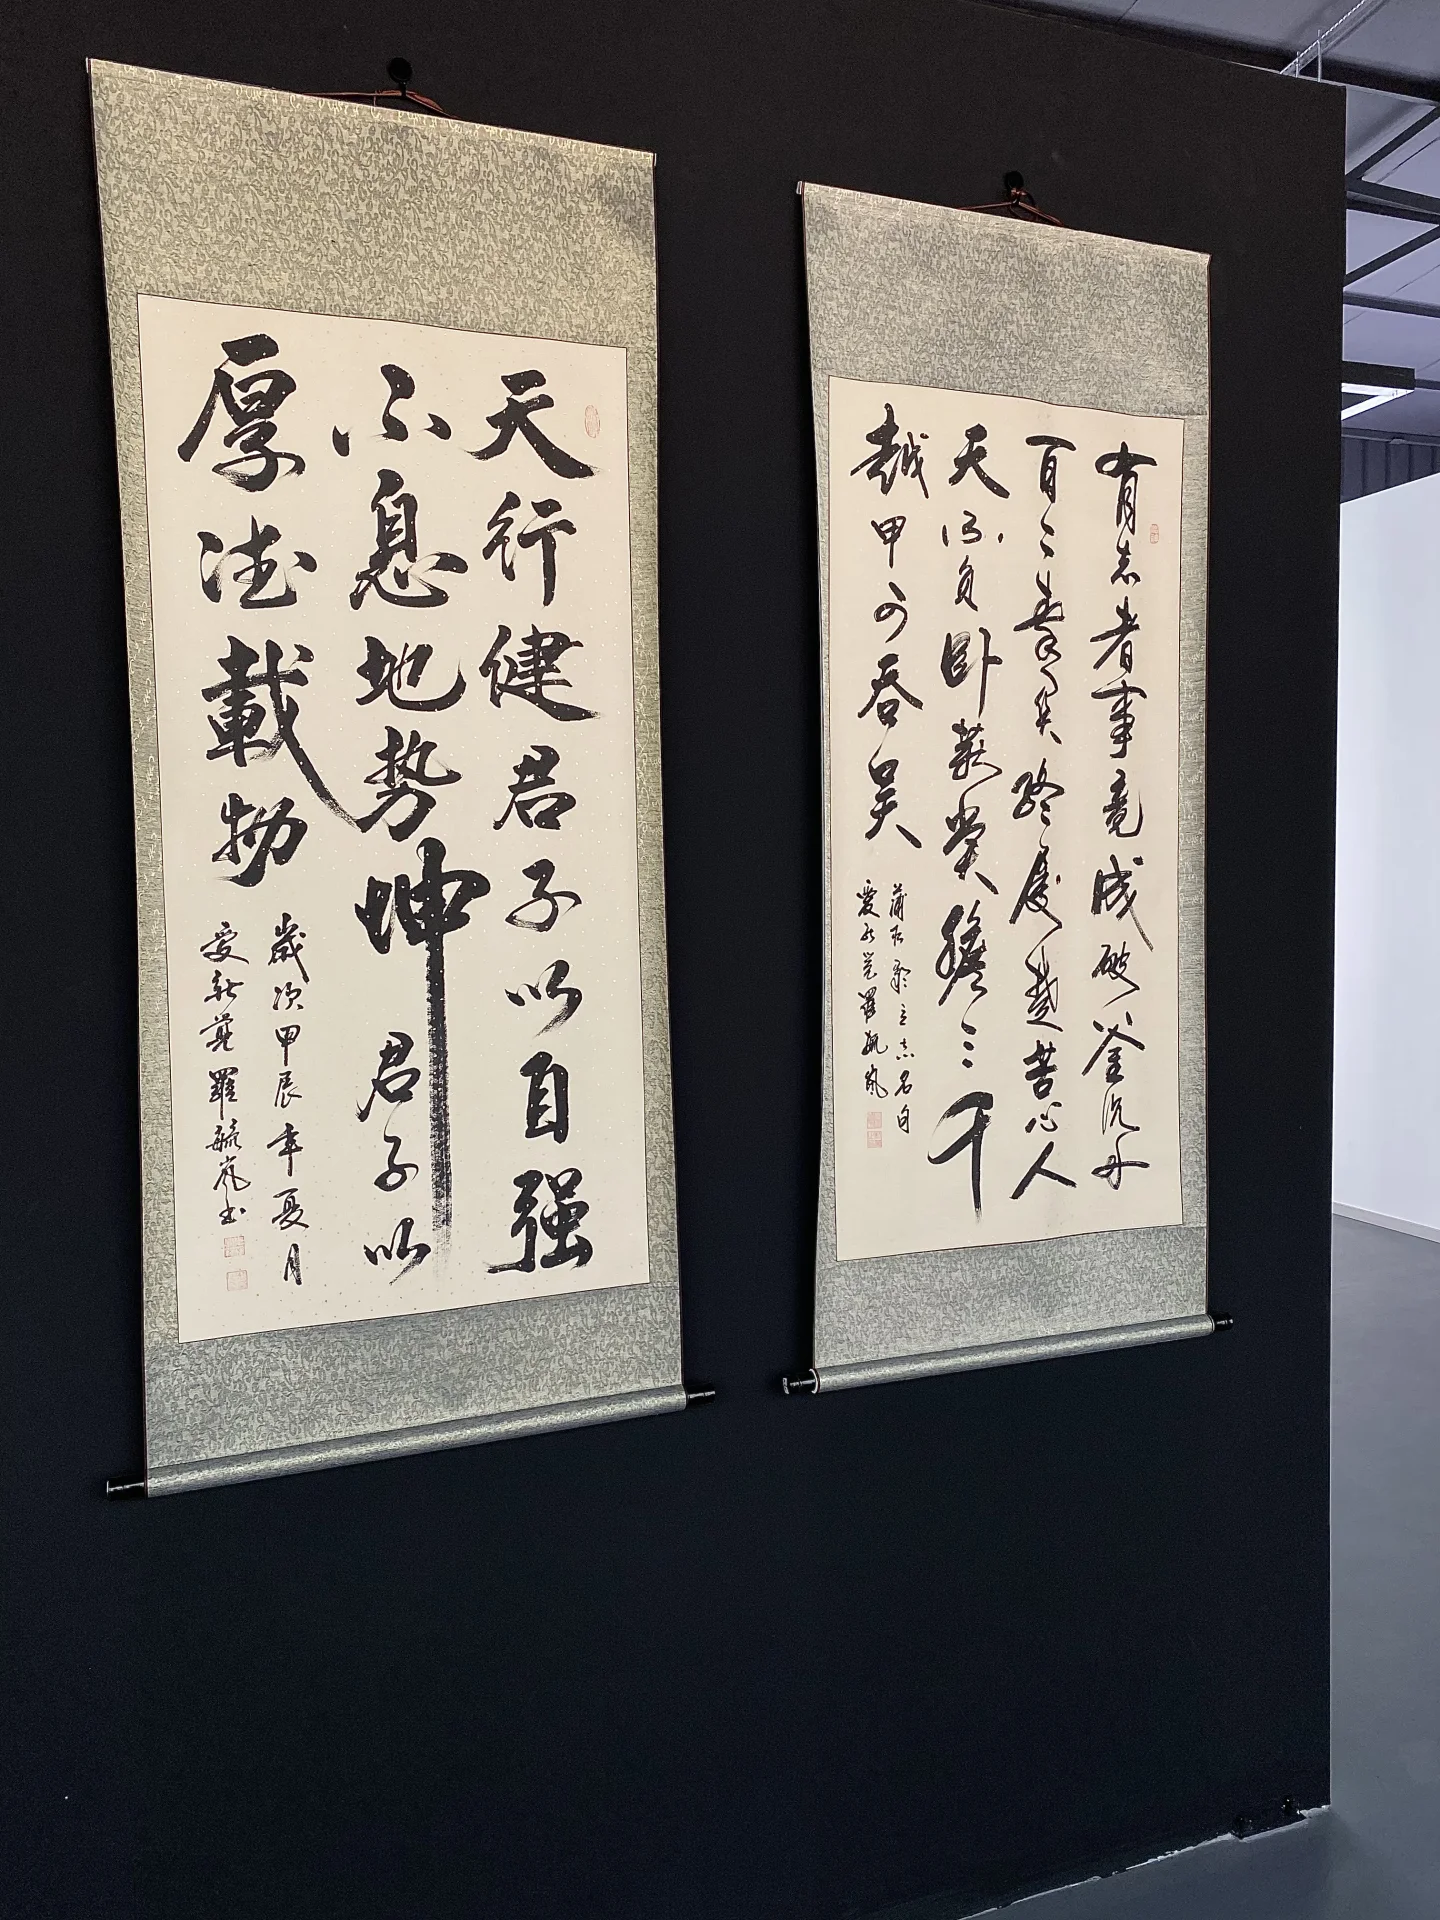 有志者事竟成破釜沉舟
百二秦关终属楚苦心人
天不负卧薪嘗膽三千
越甲可吞吴
蒲松龄立志名句
愛新覺羅毓嵐
天行健君子以自强
不息地势坤君子以
厚德載物
歲次甲辰年夏月
愛新覺羅毓嵐书